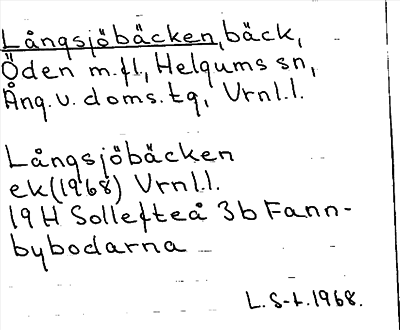 Långsjöbäcken, bäck,
Öden m.fl., Helgums sn,
Ång.v. doms.tg, Vrnl.l.
Långsjöbäcken
ek(1968) Vrnl.l.
19H Sollefteå 3b Fann-
bybodarna
L.S-t. 1968.